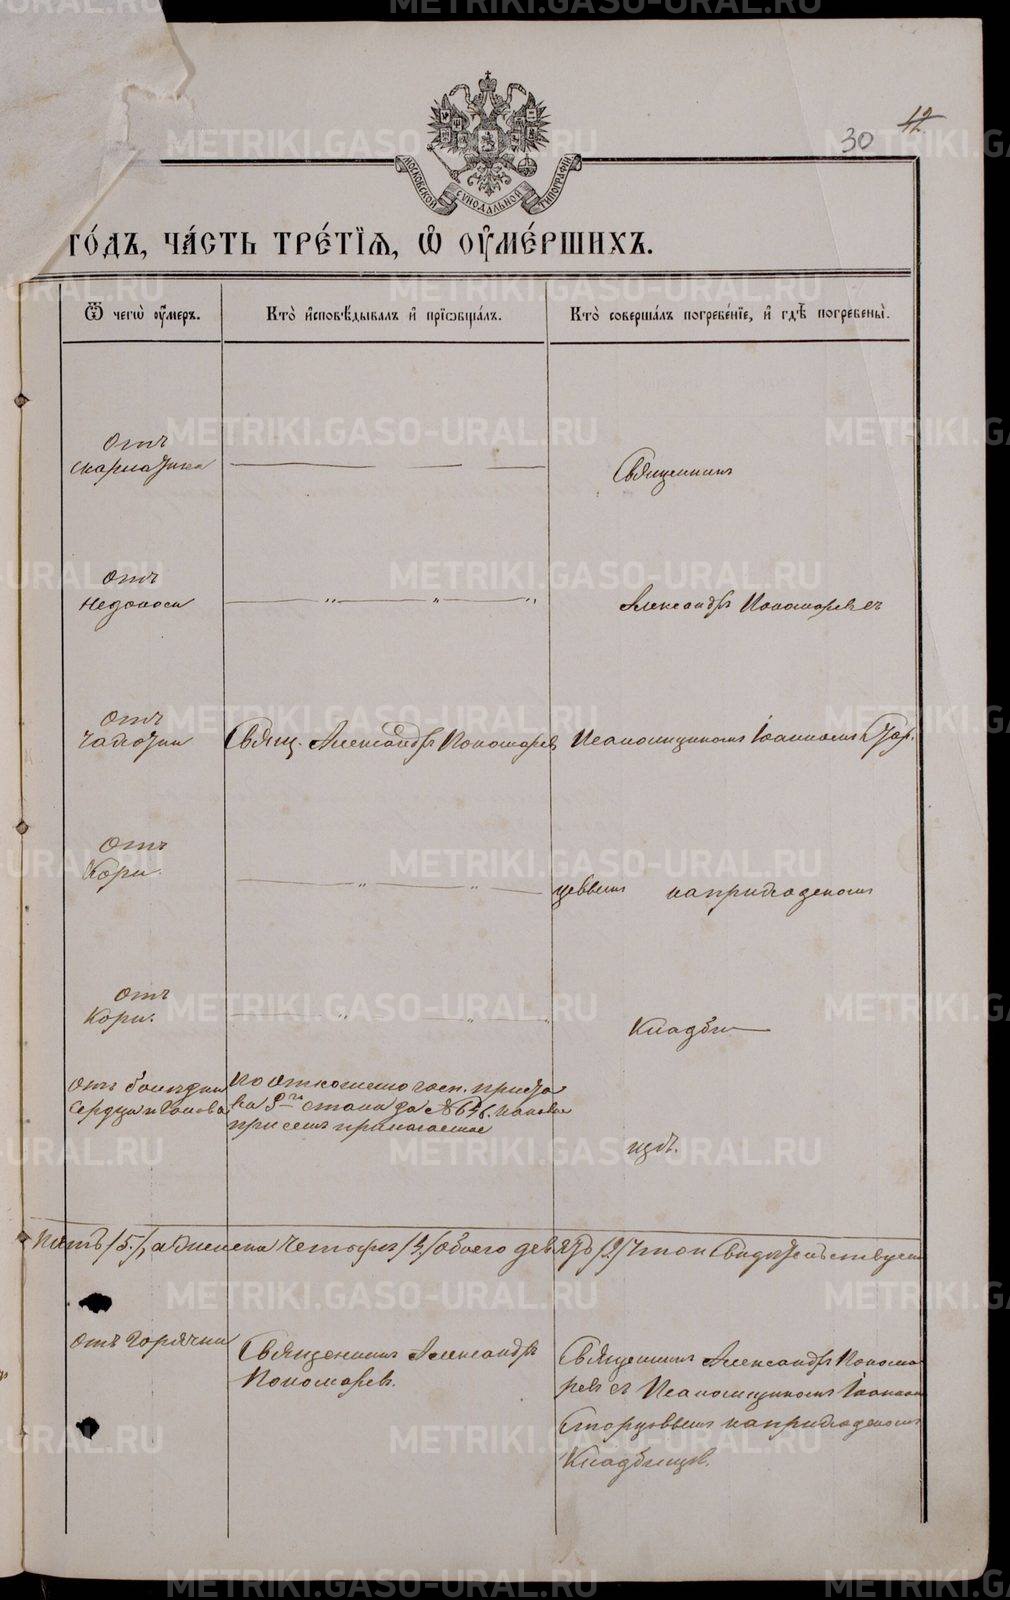 30 12
МОСКОВСКОЙ СѴНОДАЛЬНОЙ ТИПОГРАФІИ
ГО́ДЪ, ЧА́СТЬ ТРЕ́ТЇѦ, Ѡ҆ ОУ҆МЕ́РШИХЪ.
Ѿ чегѡ̀ оу҆́меръ.
Кто̀ и҆сповѣ́дывалъ и҆ прїѡбща́лъ.
Кто̀ соверша́лъ погребе́нїе, и҆ гдѣ̀ погребены̀.
Отъ
скарлатина
Священникъ
Отъ
недоноси
Александръ Пономаревъ съ
Отъ
чахотки
Свящ. Александръ Пономаревъ
Псаломщикомъ Іоанномъ Стор.
Отъ
Кори.
цевымъ на приходскомъ
Отъ
Кори.
Кладби
Отъ болезни
сердца и
По отношенію госп. приста
ва 3го стана за № 646. каковое
при семъ прилагаемое
щѣ.
Пять /5./, а женска четыре /4/ обоего девять /9/ Что и Свидѣтельствуемъ
Отъ Горячки
Священникъ Александръ
Пономаревъ.
Священникъ Александръ Понома
ревъ съ Псаломщикомъ Іоанном
Сторцевымъ на приходскомъ
Кладбищѣ.
METRIKI.GASO-URAL.RU